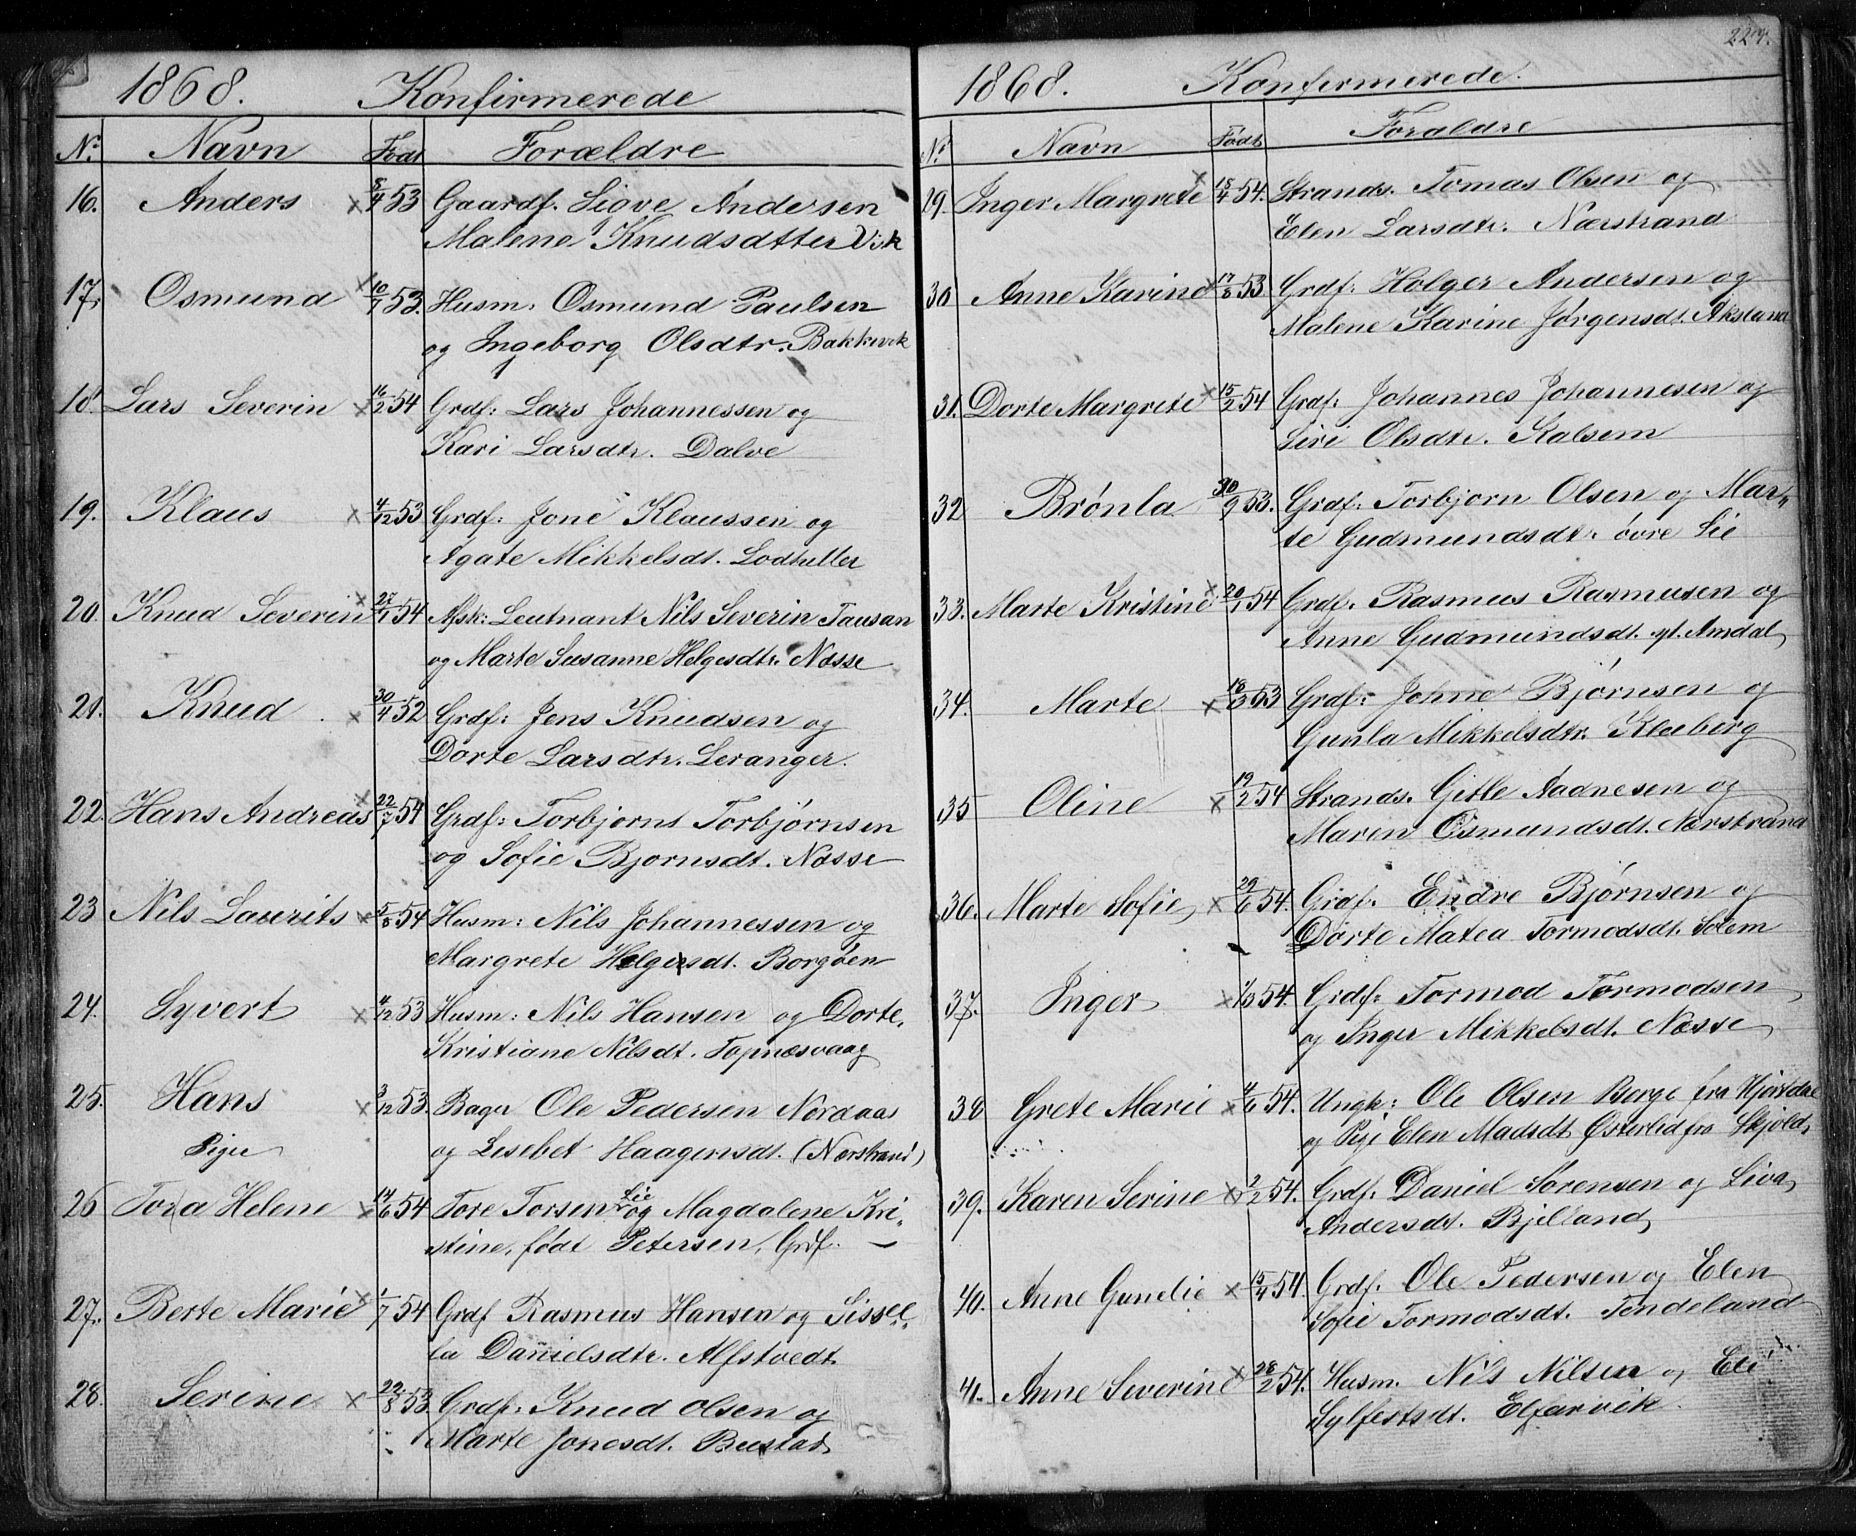 1868. Konfirmerede
No. Navn Født Forældre
16. Anders × 8/4 53 Gaardf. Siove Andersen
Malene Knudsdtter Vik
17. Osmund × 10/7 53. Husm: Osmund Paulsen
og Ingeborg Olsdtr. Bakkevik
18. Lars Severin × 16/2 54 Grdf: Lars Johannessen og
Kari Larsdtr. Dalve
19. Klaus × 4/12 53 Grdf: Jone Klaussen og
Agate Mikkelsdt. Lodhuller
20. Knud Severin × 27/1 54 Afsk: Leutnant Nils Severin Tausan
og Marte Susanne Helgesdtr. Næsse
21. Knud × 30/4 52 Grdf: Jens Knudsen og
Dorte Larsdtr. Leranger.
22. Hans Andreas × 22/7 54 Grdf: Torbjorns Torbjørnsen
og Sofie Bjornsdt. Næsse
23 Nils Laurits × 5/8 54 Husm: Nils Johannessen og
Margrete Helgersdt. Borgøen
24. Syvert × 4/12 53 Husm: Nils Hansen og Dorte
Kristiane Nilsdt. Topnæsvaag
25. Hans × 3/12 53. Bager Ole Pedersen Nordaas
Piger og Lisebet Haagensdt. (Nærstrand)
26 Tora Helene × 14/6 54 Tore Torsen Lie og Magdalene Kri-
stine, født Petersen, Grdf. —
27. Berte Marie × 1/7 54 Grdf Rasmus Hansen og Sissel-
la Danielsdtr. Alfstvedt
28. Serine × 22/8 53. Grdf: Knud Olsen og
Marte Jonesdt. Bustad
227.
1868. Konfirmerede.
No. Navn Født Forældre
29. Inger Margrete × 18/4 54. Strands. Tomas Olsen og
Elen Larsdtr. Nærstrand
30 Anne Karine × 17/8 53 Grdf: Holger Andersen og
Malene Karine Jørgensdt. Aksland
31. Dorte Margrete × 15/2 54 Grdf: Johannes Johannesen og
Siri Olsdtr. Kalsem
32 Brønla 30/9 53. Grdf: Torbjorn Olsen og Mar-
te Gudmundsdt. øvre Lie
33. Marte Kristine × 20/1 54 Grdf. Rasmus Rasmusen og
Anne Gudmundsdt. yt. Amdal
34. Marte × 18/3 53 Grdf: Johne Bjørnsen og
Gunla Mikkelsdtr. Kleiberg
35 Oline × 19/2 54 Strands. Gitle Aadnesen og
Maren Osmundsdt. Nærstrand
36. Marte Sofie × 29/6 54. Grdf. Endre Bjørnsen og
Dorte Matea Tormodsdt. Solem
37. Inger × 1/3 54. Grdf: Tormod Tormodsen
og Inger Mikkelsdt. Næsse
38 Grete Marie × 4/6 54. Ungk: Ole Olsen Berge fra Hjørtdal
og Pige Elen Madsdt. Østerlid fra Skjold
39. Karen Serine × 2/2 54. Grdf. Daniel Sørensen og Siva
Andersdt. Bjelland
40. Anne Gunelie × 15/4 54. Grdf. Ole Pedersen og Elen
Sofie Tormodsdt. Tendeland
41. Anne Severine × 28/2 54. Husm. Nils Nilsen og Eli
Sylfestsdt. Elfarvik.